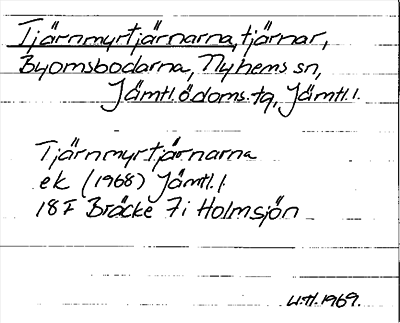 Tjärnmyrtjärnarna, tjärnar,
Byomsbodarna, Nyhems sn,
Jämtl. ö. doms. tg, Jämtl. l.
Tjärnmyrtjärnarna
ek (1968) Jämtl. l.
18F Bräcke 7i Holmsjön
1969.